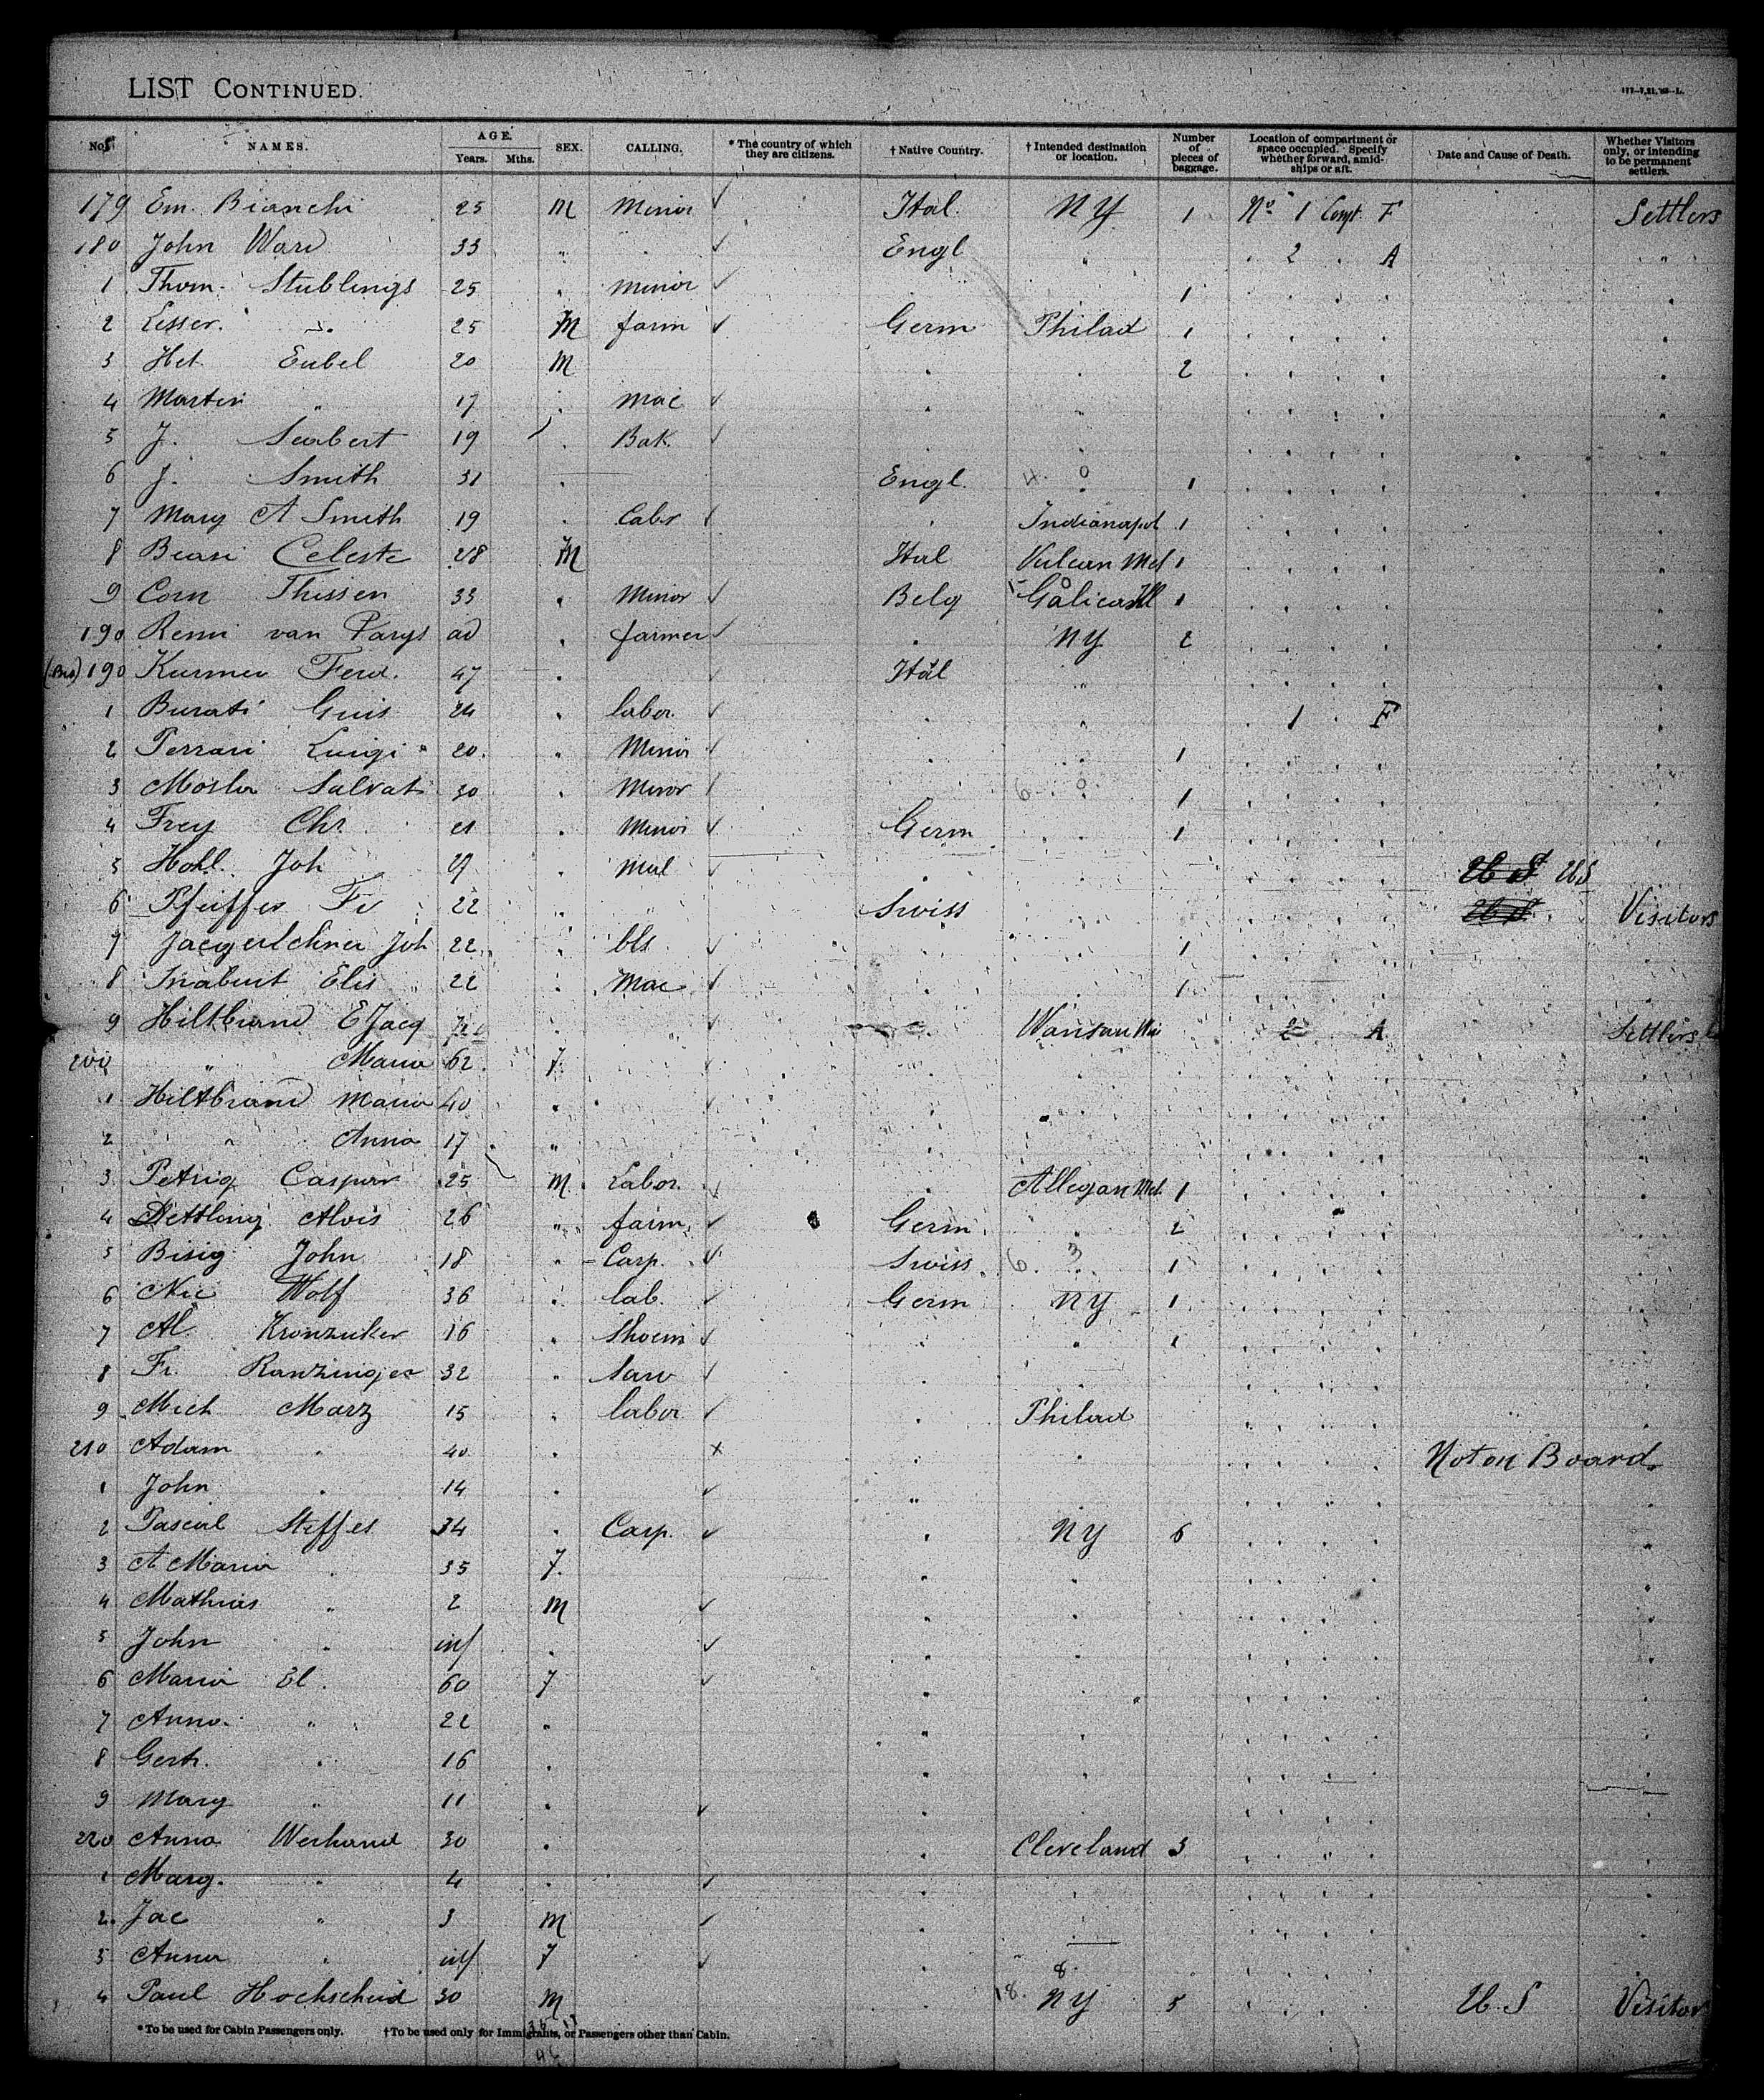 LIST CONTINUED.
Nos NAMES. AGE. Years. Mths. SEX. CALLING. * The country of which they are citizens. † Native Country. † Intended destination or location. Number of pieces of baggage. Location of compartment or space occupied. Specify whether forward, amidships or aft. Date and Cause of Death. Whether Visitors only, or intending to be permanent settlers.
179 Em. Bianchi 25 M Minor ✓ Ital. NY 1 No 1 Compt. F Settlers
180 John Ward 33 " . ✓ Engl " . 2 . A "
1 Thom. Stublings 25 . minor ✓ 1
2 Lesser. " 25 M farm ✓ Germ Philad 1
3 Het Eubel 20 M . . 2
4 Martin " 17 . Mac ✓ . "
5 J. Seubert 19 . Bak. ✓
6 J. Smith 31 . Engl. 4. 0 1
7 Mary A Smith 19 . Labr . Indianapol 1
8 Biasi Celeste 28 M Ital Vulcan Mch 1
9 Corn Thissen 33 . Minor ✓ Belg 1
190 Remi van Parys ad . farmer ✓ . NY 2
190 Kurmer Ferd. 47 . Ital "
1 Burati Guis 24 . labor. ✓ . " . 1 . F
2 Ferrari Luigi 20. " Minor . . 1
3 Salvat 30 . Minor . 6 0 1
4 Frey Chr. 21 . Minor ✓ Germ . 1
5 Hohl Joh . ✓ US
6 Pfeiffer Fr 22 " Swiss Visitors
7 Joh 22 . ✓ 1
8 Inabnit Elis 22 . Mac 1
9 Hiltbrand E Jacq . ✓ Wausau Wis 2 A Settlers
200 " Maria 62 f
1 Hiltbrand Maria 40 "
2 " Anna 17 "
3 Petrig Caspar 25 M Labor. . Allegan Mch. 1
4 Dettling Alois 26 " farm. ✓ Germ . 2
5 Bisig John 18 " Carp. ✓ Swiss 6. 3 1
6 Nic Wolf 36 . lab. ✓ Germ NY 1
7 Al. Kronzuker 16 . Shoem ✓ . " 1
8 Fr. Ranzinger 32 "
9 Mich Marz 15 " labor ✓ . Philad
210 Adam " 40 . x . . Not on Board.
1 John " 14 . ✓ "
2 Pascal Steffes 34 . Carp. ✓ . NY 6
3 A Maria . 35 f. . .
4 Mathias " 2 M ✓
5 John . inf . ✓
6 Maria El. 60 f ✓
7 Anna. " 22 "
8 Gert. " 16 .
9 Marg " 11 . ✓
220 Anna Werhand 30 . . Cleveland 3
1 Marg. " 4 . ✓
2 Jac " 3 M ✓
3 Anna " inf f ✓ . 8.
4 Paul Hochscheid 30 M . 18. NY 5 . . . U.S Visitor
* To be used for Cabin Passengers only. † To be used only for Immigrants, or Passengers other than Cabin.